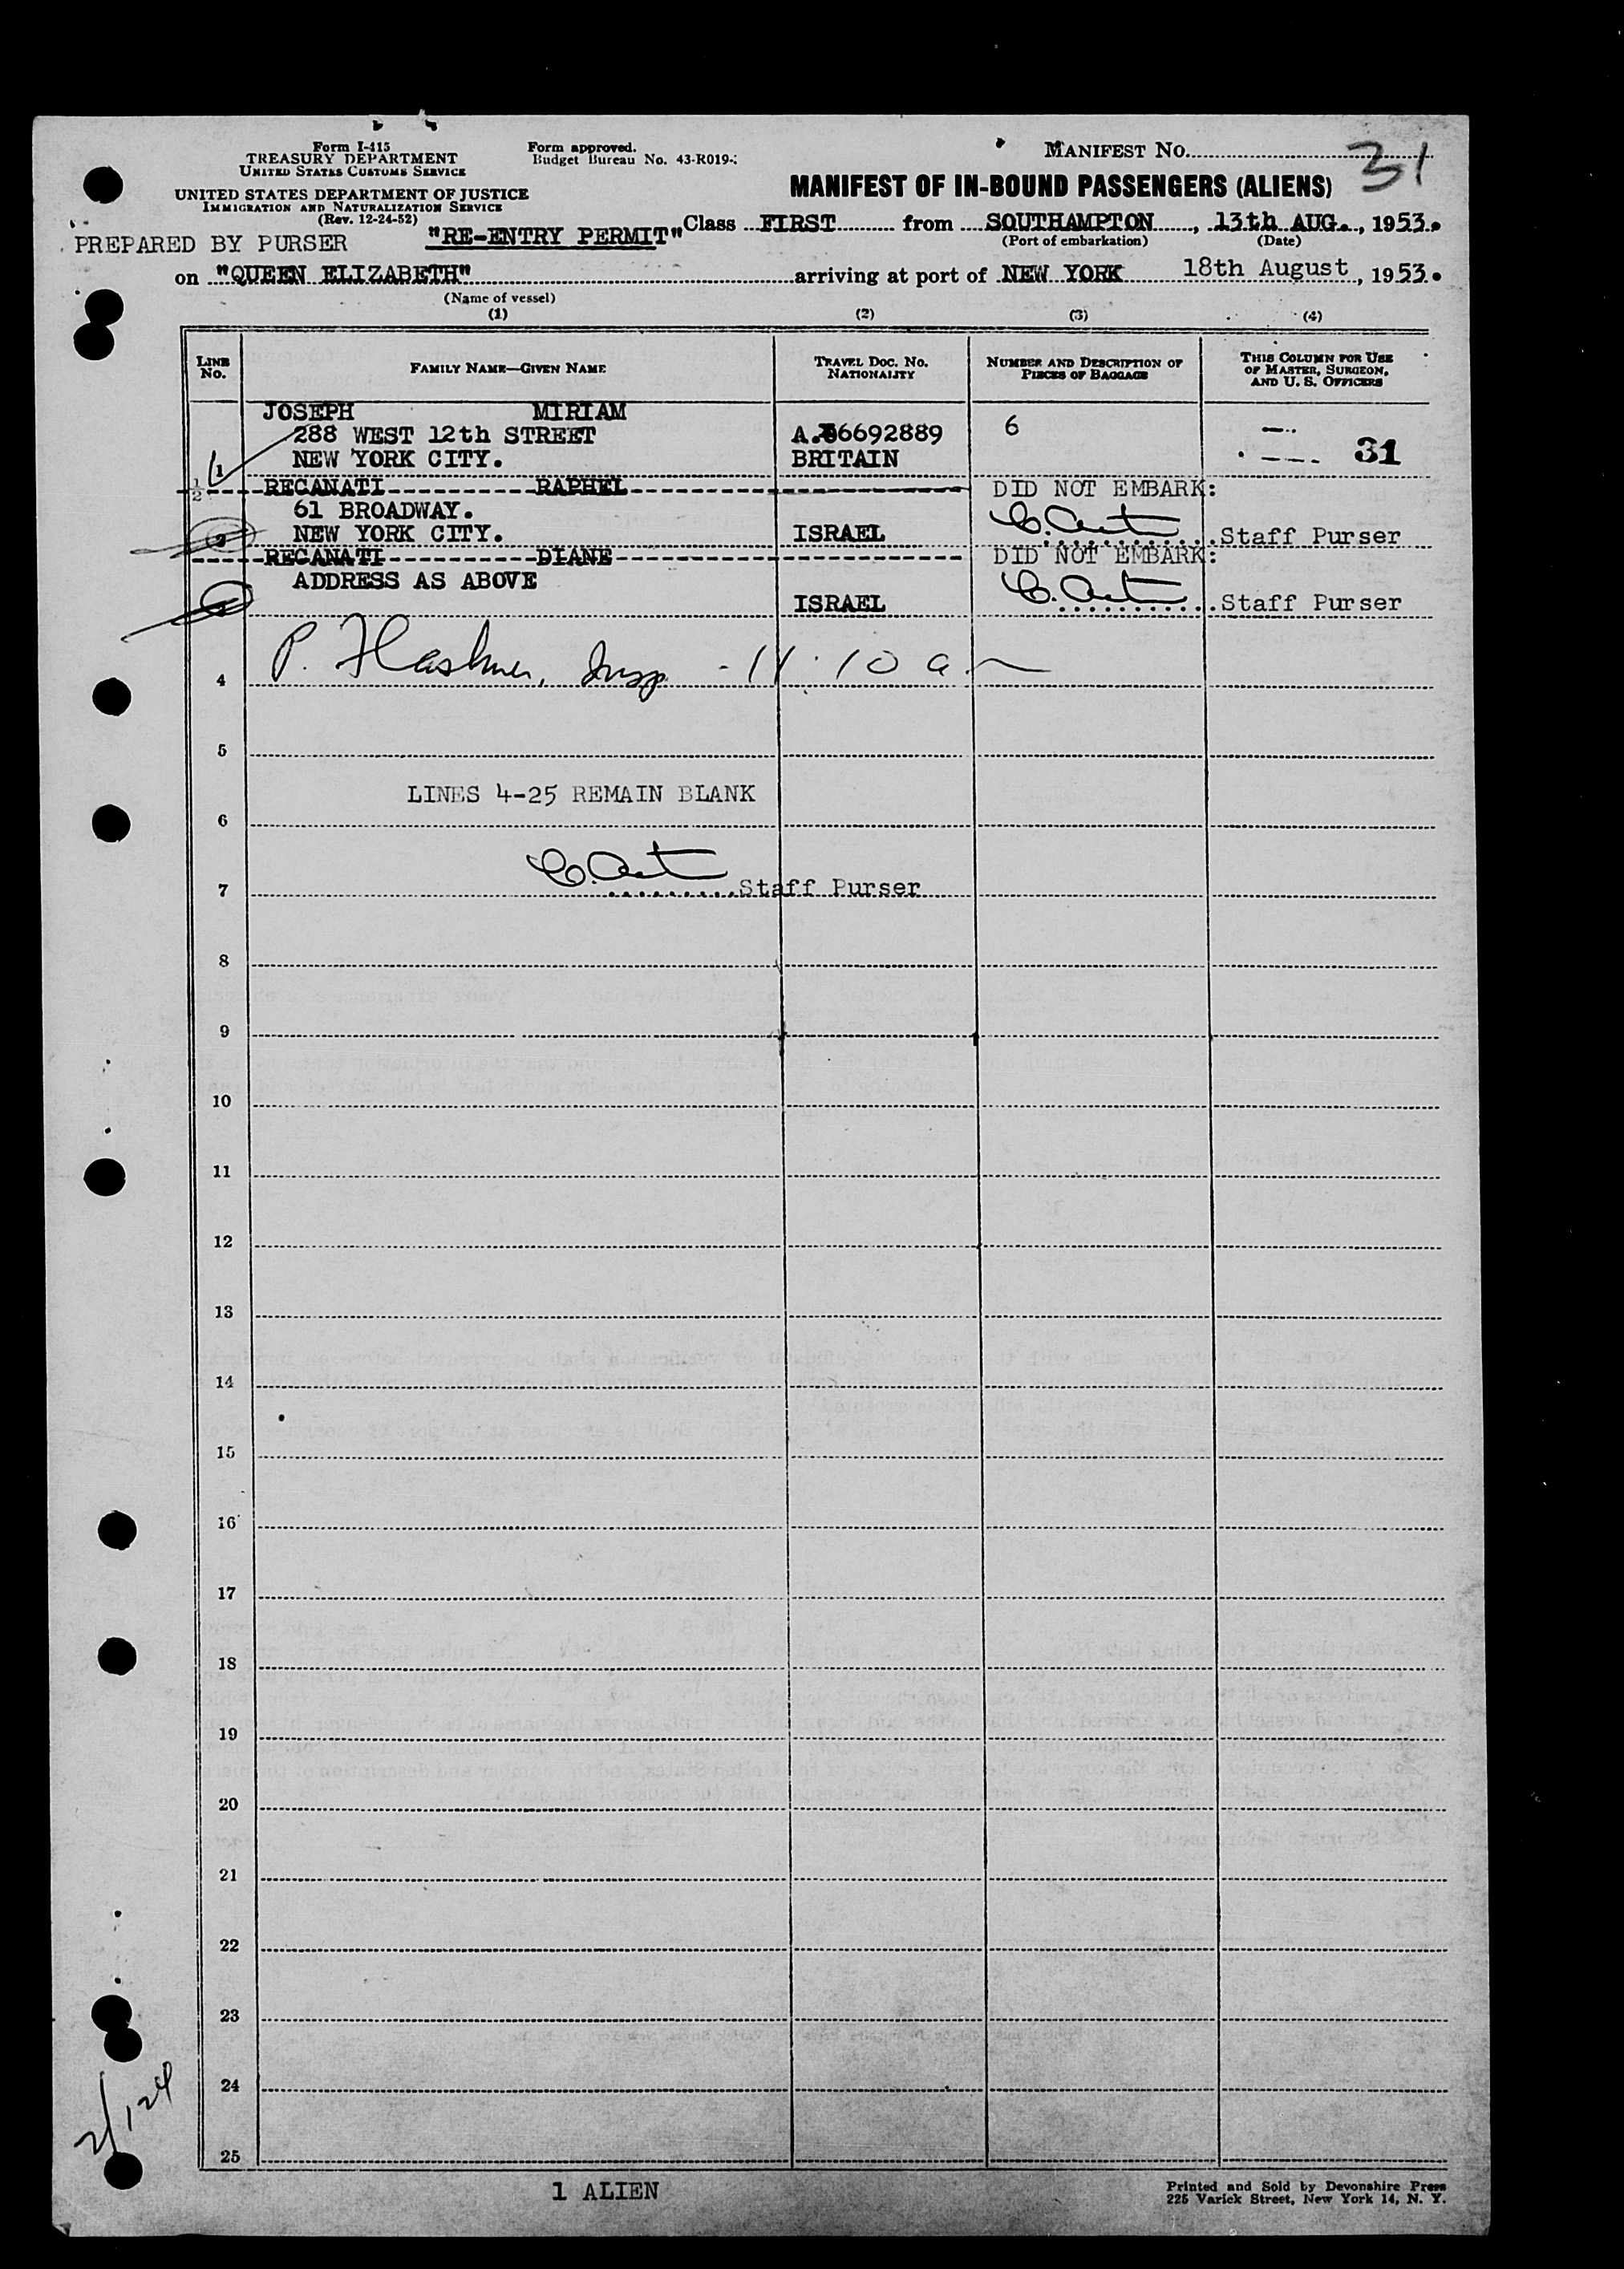 Form I-415
TREASURY DEPARTMENT
UNITED STATES CUSTOMS SERVICE
UNITED STATES DEPARTMENT OF JUSTICE
IMMIGRATION AND NATURALIZATION SERVICE
(Rev. 12-24-52)
Form approved.
Budget Bureau No. 43-R019-
MANIFEST NO. 31
MANIFEST OF IN-BOUND PASSENGERS (ALIENS)
PREPARED BY PURSER "RE-ENTRY PERMIT" Class FIRST from SOUTHAMPTON, 13th AUG., 1953.
(Port of embarkation) (Date)
on "QUEEN ELIZABETH" arriving at port of NEW YORK 18th August, 1953.
(Name of vessel)
(1) (2) (3) (4)
LINE NO. FAMILY NAME—GIVEN NAME TRAVEL DOC. NO. NATIONALITY NUMBER AND DESCRIPTION OF PIECES OF BAGGAGE THIS COLUMN FOR USE OF MASTER, SURGEON, AND U. S. OFFICERS
JOSEPH MIRIAM
288 WEST 12th STREET A. 6692889 6
1 NEW YORK CITY. BRITAIN 31
RECANATI RAPHEL DID NOT EMBARK:
61 BROADWAY.
2 NEW YORK CITY. ISRAEL Staff Purser
RECANATI DIANE DID NOT EMBARK:
ADDRESS AS ABOVE
3 ISRAEL Staff Purser
4 P. Insp - 11:10 a
5
LINES 4-25 REMAIN BLANK
6
7 Staff Purser
8
9
10
11
12
13
14
15
16
17
18
19
20
21
22
23
24
25
2/124
1 ALIEN
Printed and Sold by Devonshire Press
225 Varick Street, New York 14, N. Y.